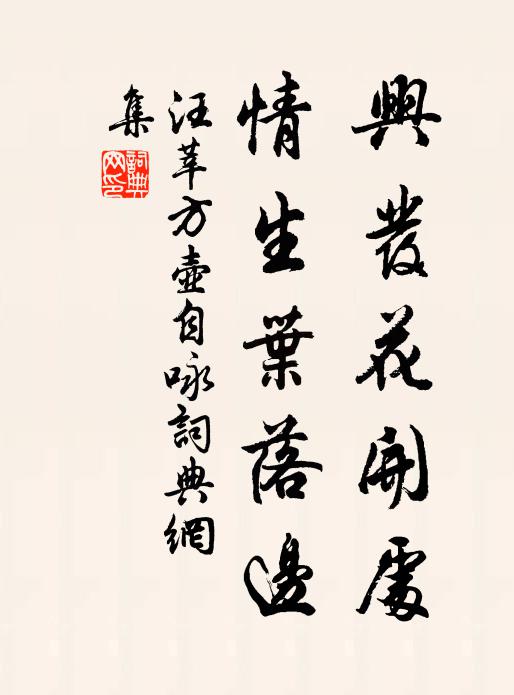 興發花開處
情生葉落邊
汪莘方壺自咏詞典網
集
詞典網印